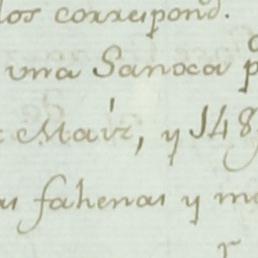 los correspond.
una Sanoca p
Maiz, y 148
as fahenas y me